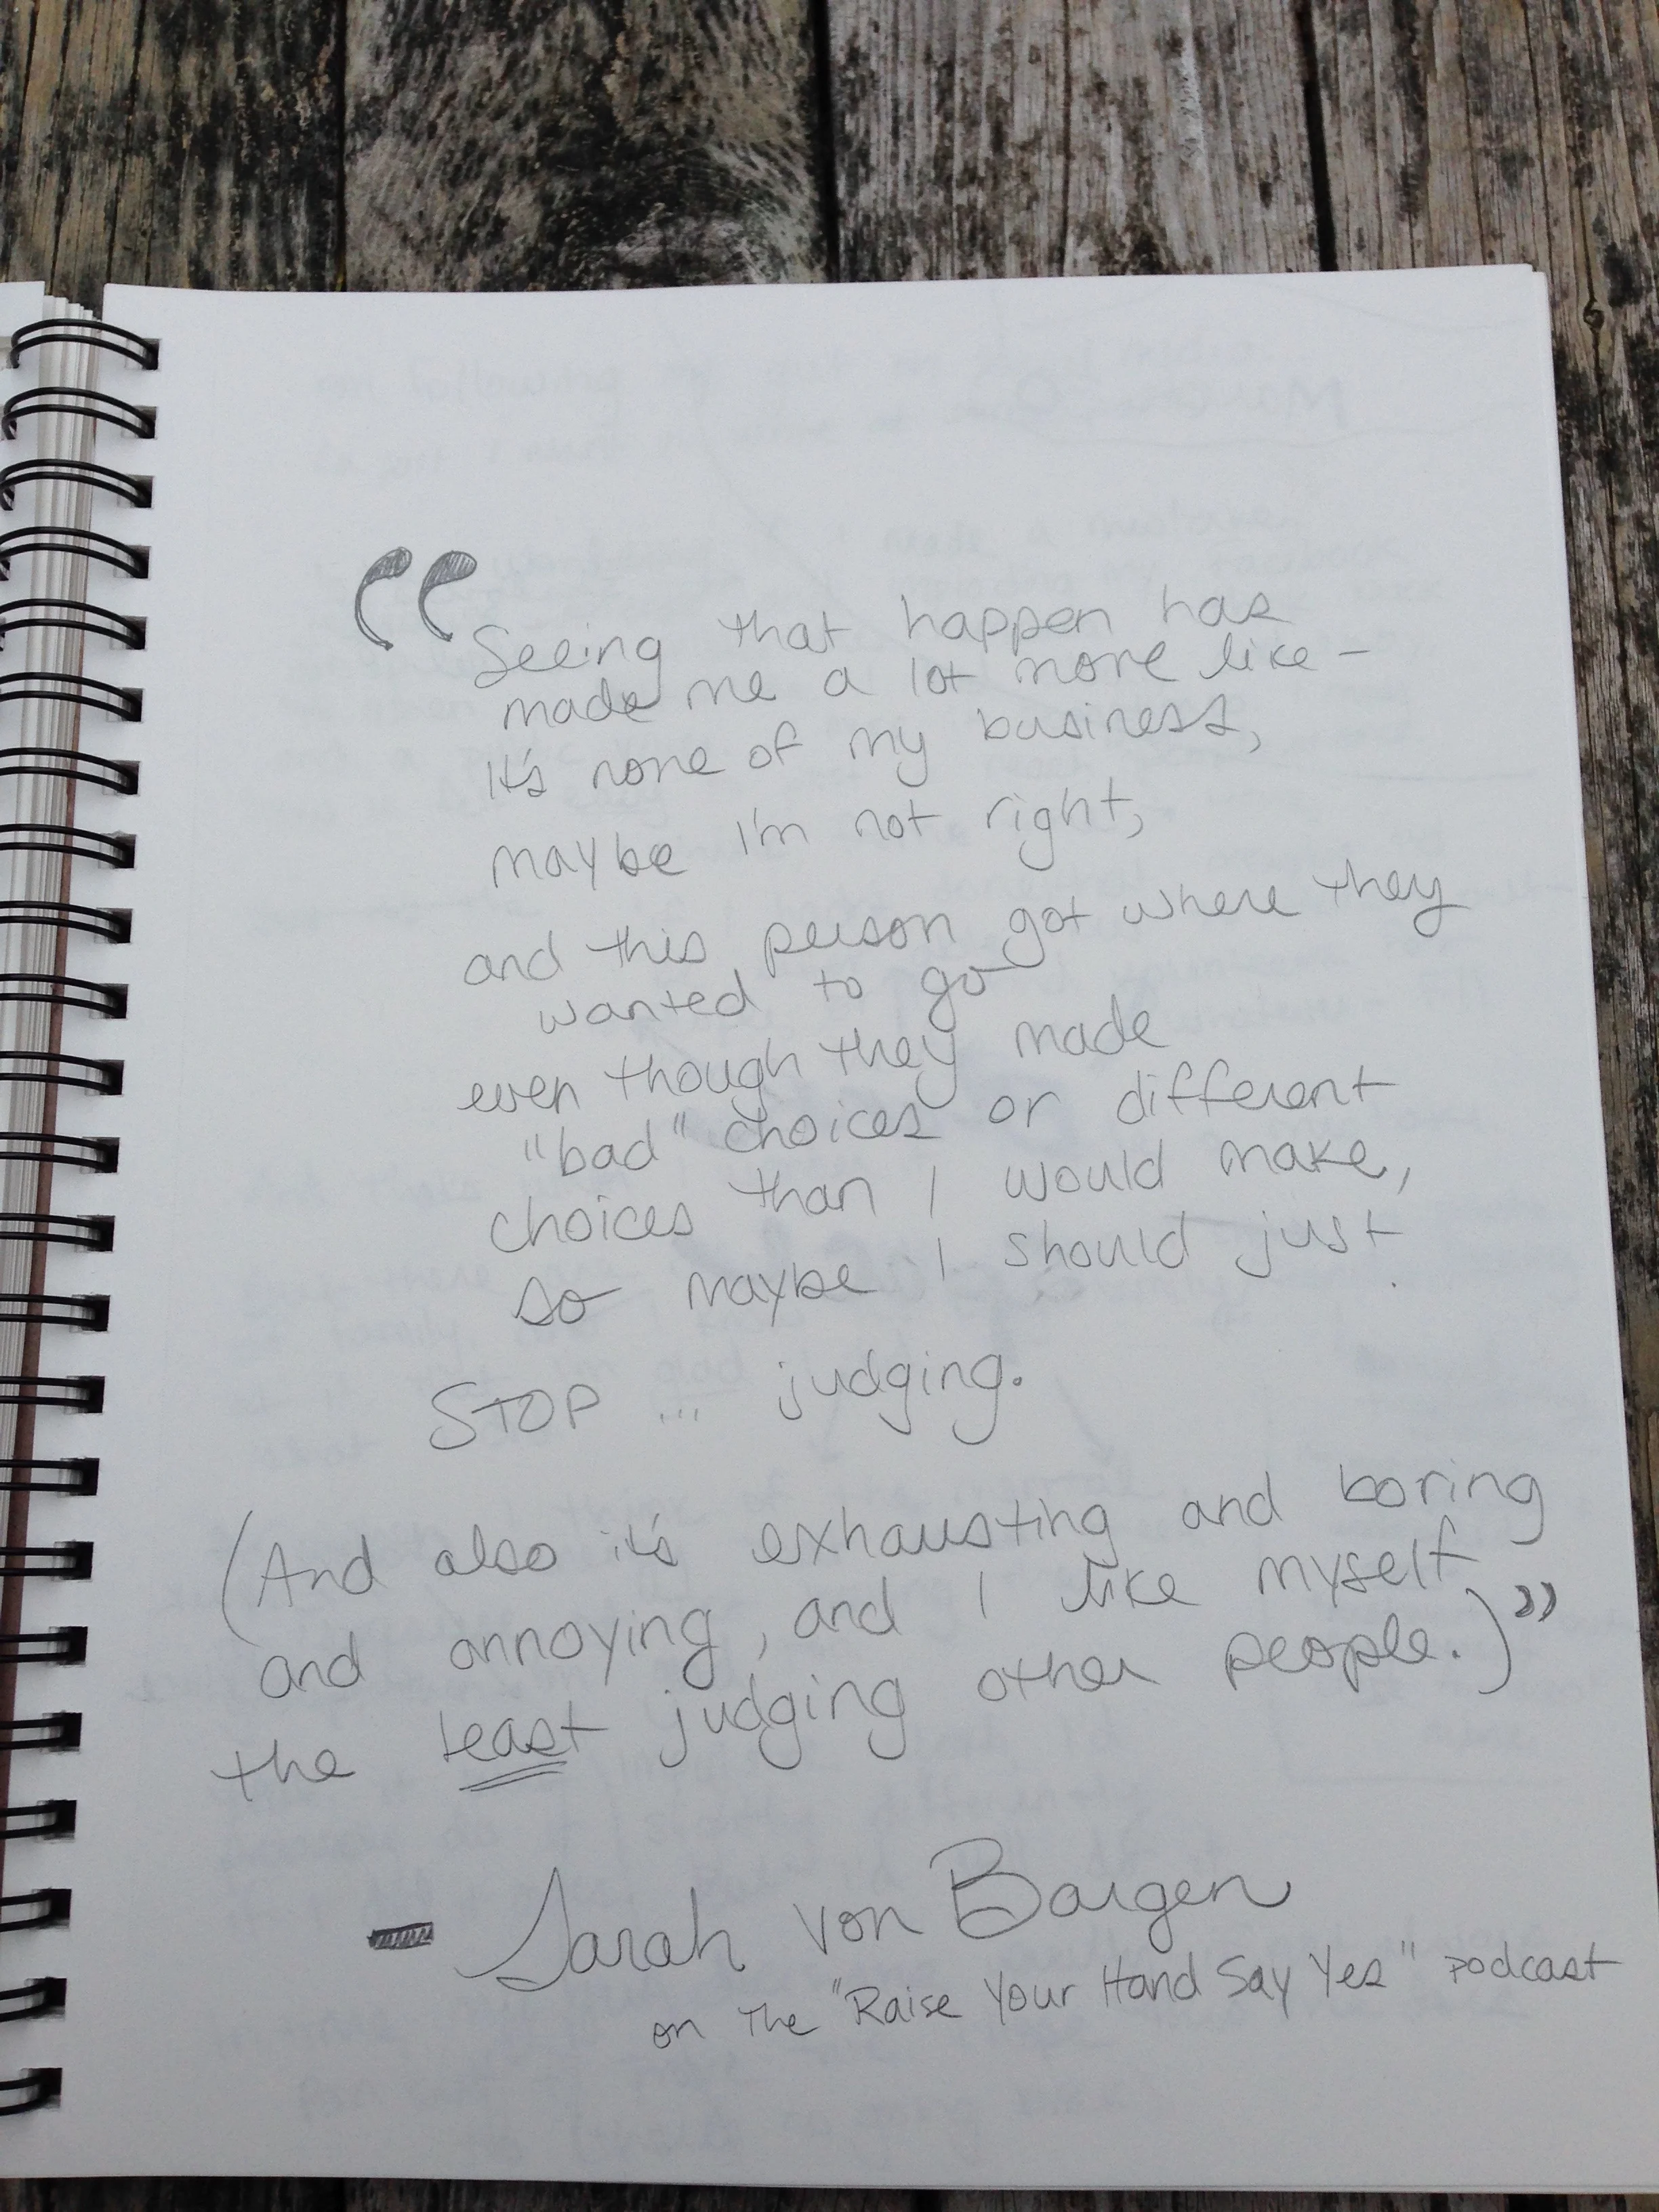 “Seeing that happen has
made me a lot more like -
it's none of my business,
maybe I'm not right,
and this person got where they
wanted to go
even though they made
"bad" choices or different
choices than I would make,
so maybe I should just
STOP ... judging.
(And also it's exhausting and boring
and annoying, and I like myself
the least judging other people.)”
- Sarah Von Bargen
on the "Raise Your Hand Say Yes" podcast